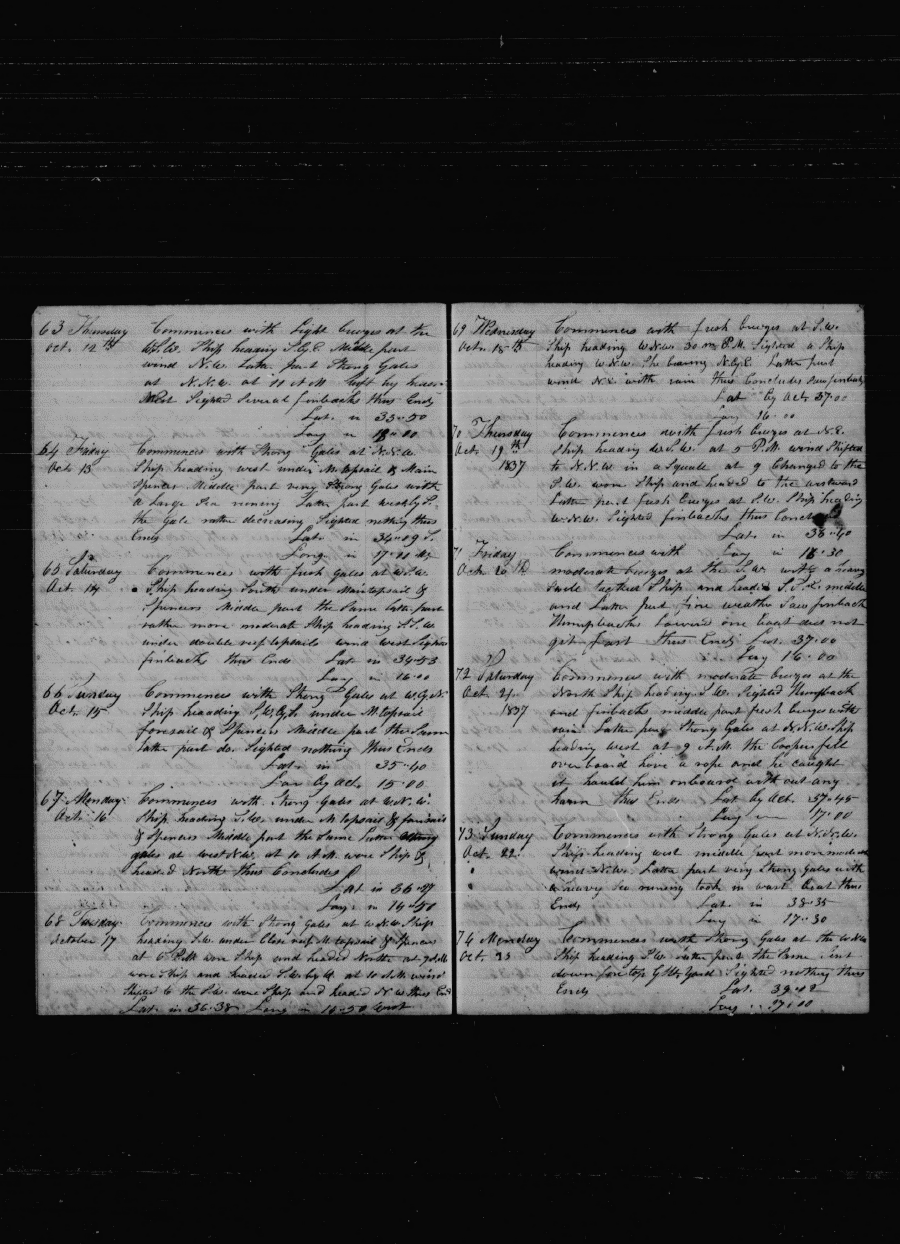 63 Thursday Commences with Light breezes at the
Oct. 12th W.S.W. Ship heading S.byE. Middle part
wind N.W. Latter part Strong Gales
at N.N.W. at 11 A.M. by heading
West Sighted Several finbacks thus Ends
Lat. in 35-50
Long in 18-00
64 Friday Commences with Strong Gales at N.N.W.
Oct. 13 Ship heading west under M. topsail & Main
Spencer Middle part very Strong Gales with
a Large Sea runing Latter part
the Gale rather decreasing Sighted nothing thus
Ends Lat. in 34-09 S.
Long. in 17-00 W
65 Saturday Commences with fresh Gales at W.S.W.
Oct. 14 Ship heading South under Maintopsail &
Spencers Middle part the Same latter part
rather more moderate Ship heading S.S.W.
under double reef topsails wind West Sighted
finbacks thus Ends Lat in 34-53
Long in 16-00
66 Sunday Commences with Strong Gales at W.byN.
Oct. 15 Ship heading S.W.byS. under M. topsail
foresail & Spencers Middle part the Same
latter part do. Sighted nothing thus Ends
Lat. in 35-40
Lon by act. 15-00
67 Monday Commences with Strong Gales at W.N.W.
Oct. 16 Ship heading S.W. under M. topsail & foresail
& Spencers Middle part the Same Latter Strong
gales at West N.W. at 10 A.M. wore Ship &
headed North thus Concludes
Lat in 36-27
Long. in 14-50
68 Tuesday Commences with Strong Gales at W.N.W. Ship
October 17 heading S.W. under Close reef M. topsail & Spencers
at 6 P.M. wore Ship and headed North at 9 A.M.
wore Ship and headed S.W. by W. at 10 A.M. wind
Shifted to the S.W. wore Ship and headed N.W. thus End
Lat. in 36-38 Long in 14-50 West
69 Wednesday Commences with fresh breezes at S.W.
Oct. 18th Ship heading W.N.W. 30 m P.M. Sighted a Ship
heading W.N.W. She bearing N.byE. Latter part
wind N.E. with rain thus Concludes Saw finbacks
Lat by Act. 37-00
Long 16-00
70 Thursday Commences with fresh breezes at N.E.
Oct. 19th Ship heading W.S.W. at 5 P.M. wind Shifted
1837 to N.N.W. in a Squale at 9 Changed to the
S.W. wore Ship and headed to the westward
Latter part fresh breezes at S.W. Ship heading
W.N.W. Sighted finbacks thus
Lat. in 36-40
71 Friday Commences with Long in 18-30
Oct. 20th moderate breezes at the S.W. with a heavy
Swele tacked Ship and headed S.S.E. middle
and Latter part fine weather Saw finback
Humpbacks Lowered one boat did not
get fast thus Ends Lat. 37-00
Long 16-00
72 Saturday Commences with moderate breezes at the
Oct. 21 North Ship heading S.W. Sighted Humpback
1837 and finbacks middle part fresh breezes with
rain Latter part Strong Gales at N.N.W. Ship
heading West at 9 A.M. the Cooper fell
overboard hove a rope and he caught
it hauled him onboard with out any
harm thus Ends Lat by Act. 37-45
Long in 17-00
73 Sunday Commences with Strong Gales at N.N.W.
Oct. 22. Ship heading west middle part more moderate
wind N.W. Latter part very Strong Gales with
a heavy sea runing took in waist boat thus
Ends Lat. in 38-35
Long in 17-30
74 Monday Commences with Strong Gales at the W.N.W.
Oct. 23 Ship heading S.W. Latter part the Same Sent
down foretop G. Yard Sighted nothing thus
Ends Lat. 39-12
Long 17-00